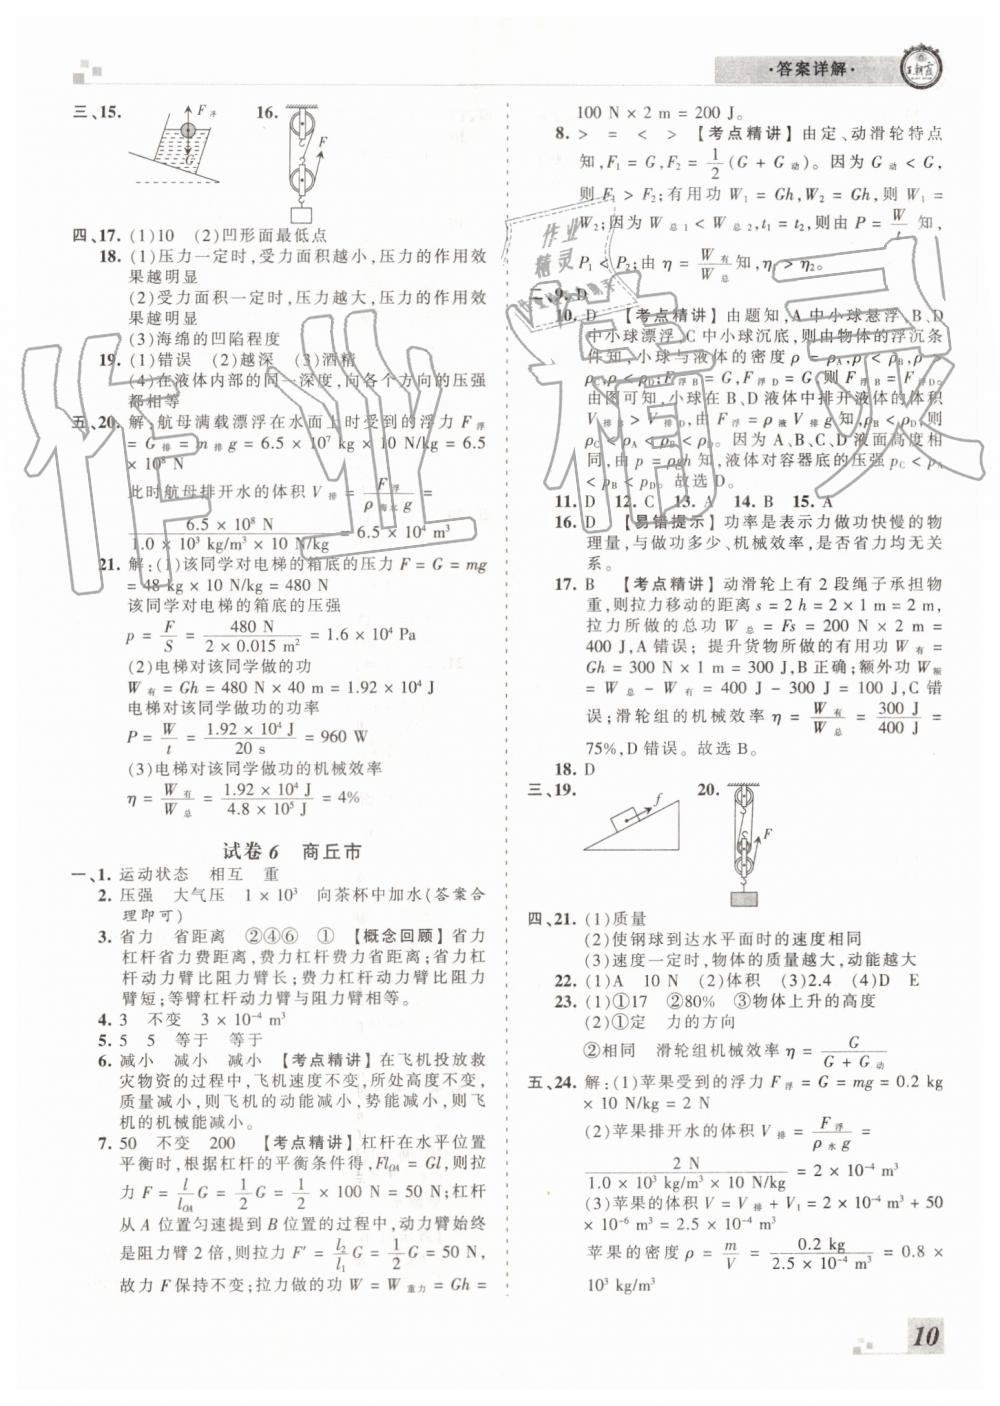 ·答案详解·
王朝霞
三、15.
F浮
G
16.
F
四、17. (1)10 (2)凹形面最低点
18. (1)压力一定时,受力面积越小,压力的作用效
果越明显
(2)受力面积一定时,压力越大,压力的作用效
果越明显
(3)海绵的凹陷程度
19. (1)错误 (2)越深 (3)酒精
(4)在液体内部的同一深度,向各个方向的压强
都相等
五、20. 解:航母满载漂浮在水面上时受到的浮力 F浮
= G排 = m排 g = 6.5 × 10⁷ kg × 10 N/kg = 6.5
× 10⁸ N
此时航母排开水的体积 V排 = F浮/ρ海水g =
6.5 × 10⁸ N/1.0 × 10³ kg/m³ × 10 N/kg = 6.5 × 10⁴ m³
21. 解:(1)该同学对电梯的箱底的压力 F = G = mg
= 48 kg × 10 N/kg = 480 N
该同学对电梯的箱底的压强
p = F/S = 480 N/2 × 0.015 m² = 1.6 × 10⁴ Pa
(2)电梯对该同学做的功
W有 = Gh = 480 N × 40 m = 1.92 × 10⁴ J
电梯对该同学做功的功率
P = W/t = 1.92 × 10⁴ J/20 s = 960 W
(3)电梯对该同学做功的机械效率
η = W有/W总 = 1.92 × 10⁴ J/4.8 × 10⁵ J = 4%
试卷6 商丘市
一、1. 运动状态 相互 重
2. 压强 大气压 1 × 10³ 向茶杯中加水(答案合
理即可)
3. 省力 省距离 ②④⑥ ① 【概念回顾】省力
杠杆省力费距离,费力杠杆费力省距离;省力杠
杆动力臂比阻力臂长;费力杠杆动力臂比阻力
臂短;等臂杠杆动力臂与阻力臂相等。
4. 3 不变 3 × 10⁻⁴ m³
5. 5 5 等于 等于
6. 减小 减小 减小 【考点精讲】在飞机投放救
灾物资的过程中,飞机速度不变,所处高度不变,
质量减小,则飞机的动能减小,势能减小,则飞
机的机械能减小。
7. 50 不变 200 【考点精讲】杠杆在水平位置
平衡时,根据杠杆的平衡条件得,FlOA = Gl,则拉
力 F = l/lOA G = 1/2 G = 1/2 × 100 N = 50 N;杠杆
从 A 位置匀速提到 B 位置的过程中,动力臂始终
是阻力臂 2 倍,则拉力 F′ = l₂/l₁ G = 1/2 G = 50 N,
故力 F 保持不变;拉力做的功 W = W重力 = Gh =
100 N × 2 m = 200 J。
8. > = < > 【考点精讲】由定、动滑轮特点
知,F₁ = G,F₂ = 1/2 (G + G动)。因为 G动 < G,
则 F₁ > F₂;有用功 W₁ = Gh,W₂ = Gh,则 W₁ =
W₂;因为 W总1 < W总2,t₁ = t₂,则由 P = W/t 知,
P₁ < P₂;由 η = W有/W总 知,η₁ > η₂。
二、9. D
10. D 【考点精讲】由题知,A 中小球悬浮,B、D
中小球漂浮,C 中小球沉底,则由物体的浮沉条
件知,小球与液体的密度 ρ = ρA,ρ < ρB,ρ >
ρC,ρ < ρD;F浮B = G,F浮D = G,则 F浮B = F浮D。
由图可知,小球在 B、D 液体中排开液体的体积
V排B > V排D,由 F浮 = ρ液V排g 知,ρB < ρD,则
ρC < ρA < ρB < ρD。因为 A、B、C、D 液面高度相
同,由 p = ρgh 知,液体对容器底的压强 pC < pA
< pB < pD。故选 D。
11. D 12. C 13. A 14. B 15. A
16. D 【易错提示】功率是表示力做功快慢的物
理量,与做功多少、机械效率,是否省力均无关
系。
17. B 【考点精讲】动滑轮上有 2 段绳子承担物
重,则拉力移动的距离 s = 2 h = 2 × 1 m = 2 m,
拉力所做的总功 W总 = Fs = 200 N × 2 m =
400 J,A 错误;提升货物所做的有用功 W有 =
Gh = 300 N × 1 m = 300 J,B 正确;额外功 W额
= W总 − W有 = 400 J − 300 J = 100 J,C 错
误;滑轮组的机械效率 η = W有/W总 = 300 J/400 J =
75%,D 错误。故选 B。
18. D
三、19.
f
20.
F
四、21. (1)质量
(2)使钢球到达水平面时的速度相同
(3)速度一定时,物体的质量越大,动能越大
22. (1)A 10 N (2)体积 (3)2.4 (4)D E
23. (1)①17 ②80% ③物体上升的高度
(2)①定 力的方向
②相同 滑轮组机械效率 η = G/G + G动
五、24. 解:(1)苹果受到的浮力 F浮 = G = mg = 0.2 kg
× 10 N/kg = 2 N
(2)苹果排开水的体积 V排 = F浮/ρ水g =
2 N/1.0 × 10³ kg/m³ × 10 N/kg = 2 × 10⁻⁴ m³
(3)苹果的体积 V = V排 + V₁ = 2 × 10⁻⁴ m³ + 50
× 10⁻⁶ m³ = 2.5 × 10⁻⁴ m³
苹果的密度 ρ = m/V = 0.2 kg/2.5 × 10⁻⁴ m³ = 0.8 ×
10³ kg/m³
10
作业精灵
作业
精灵